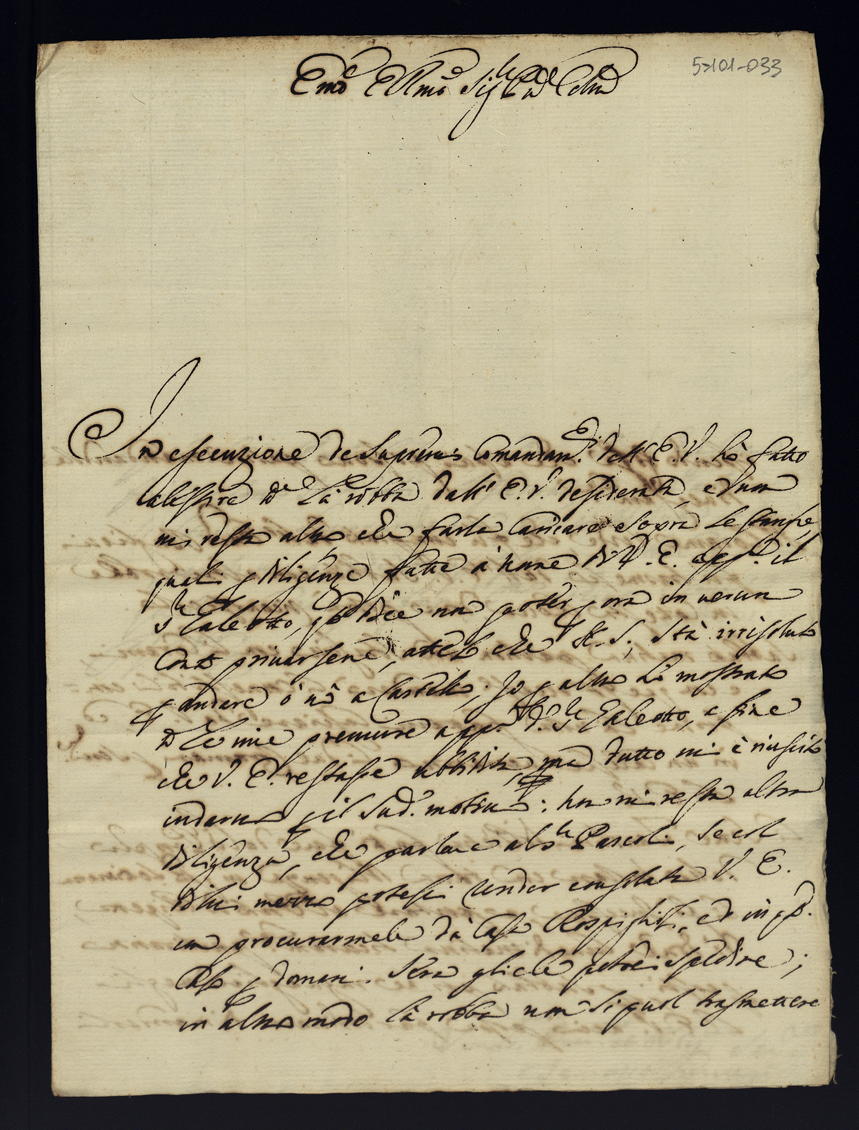 5>101-033
Emo e Rmo Sigre Pne Colmo
In esecuzione de Supremi Comandam.ti dell' E. V. hò fatto
alestire tta la robba dall' E. V. desiderata, e non
mi resta altro che farla caricare sopra le stampe,
quali diligenze fatte à nome di V. E. app.o il
Sre Galeotto, dice non poter p ora in verun
conto privarsene, atteso che S. S. stà irrisoluto
p andare ò nò a Castello. Io p altro hò mostrato
tte le mie premure app.o il d.o Sre Galeotto, a fine
che V. E. restasse ubbidita, ma tutto mi è riuscito
indarno p il sud.o motivo: non mi resta altra
diligenza, che parlare al Sre Pascoli, se col
di lui mezzo potessi render consolata V. E.
in procurarmele dà Casa Rospigliosi, ed in qto
caso p domani sera gliele potrei spedire;
in altro modo la robba non si può trasmettere